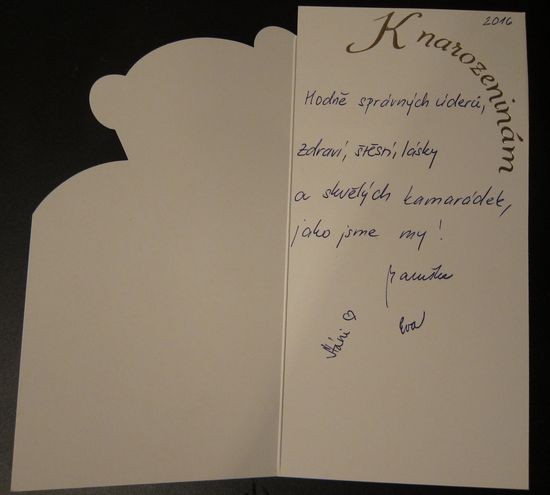 2016
K narozeninám
Hodně správných úderů,
zdraví, štěstí, lásky
a skvělých kamarádek,
jako jsme my!
Eva